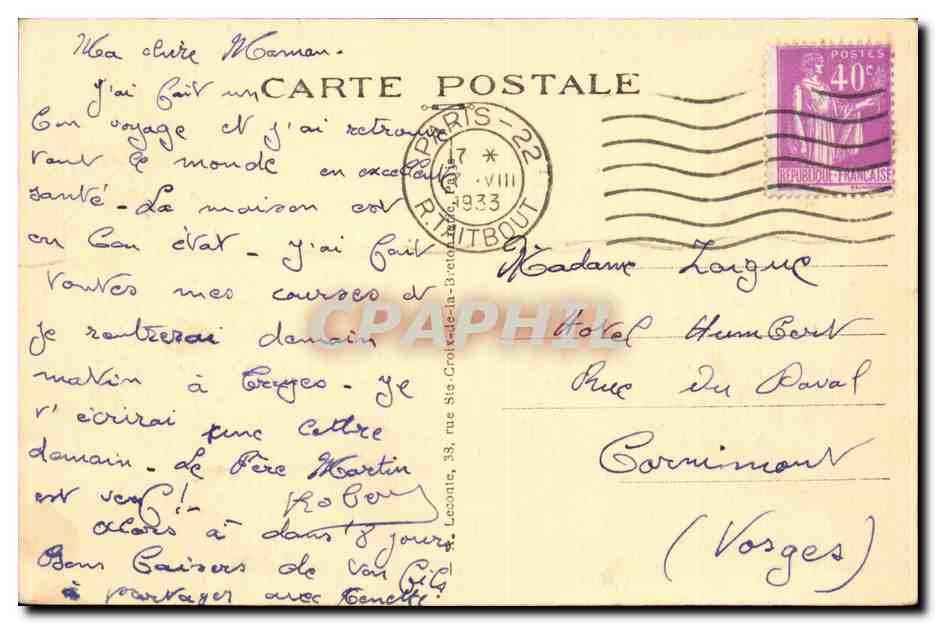 Ma chère Maman.
CARTE POSTALE
J'ai fait un
bon voyage et j'ai retrouvé
tout le monde en excellente
santé - La maison est
en bon état - J'ai fait
toutes mes courses et
je rentrerai demain
matin à Troyes - Je
t'écrirai une lettre
demain - Le Père Martin
est venu! Robert
Alors à dans 8 jours
Bons baisers de ton fils
à partager avec
PARIS - 22
7 *
VIII
1933
R. TAITBOUT
POSTES
40c
REPUBLIQUE FRANÇAISE
Leconte, 38, rue Ste-Croix-de-la-Bretonnerie, Paris
Madame Zaigue
Hotel Humbert
Rue du Daval
Cornimont
(Vosges)
CPAPHIL